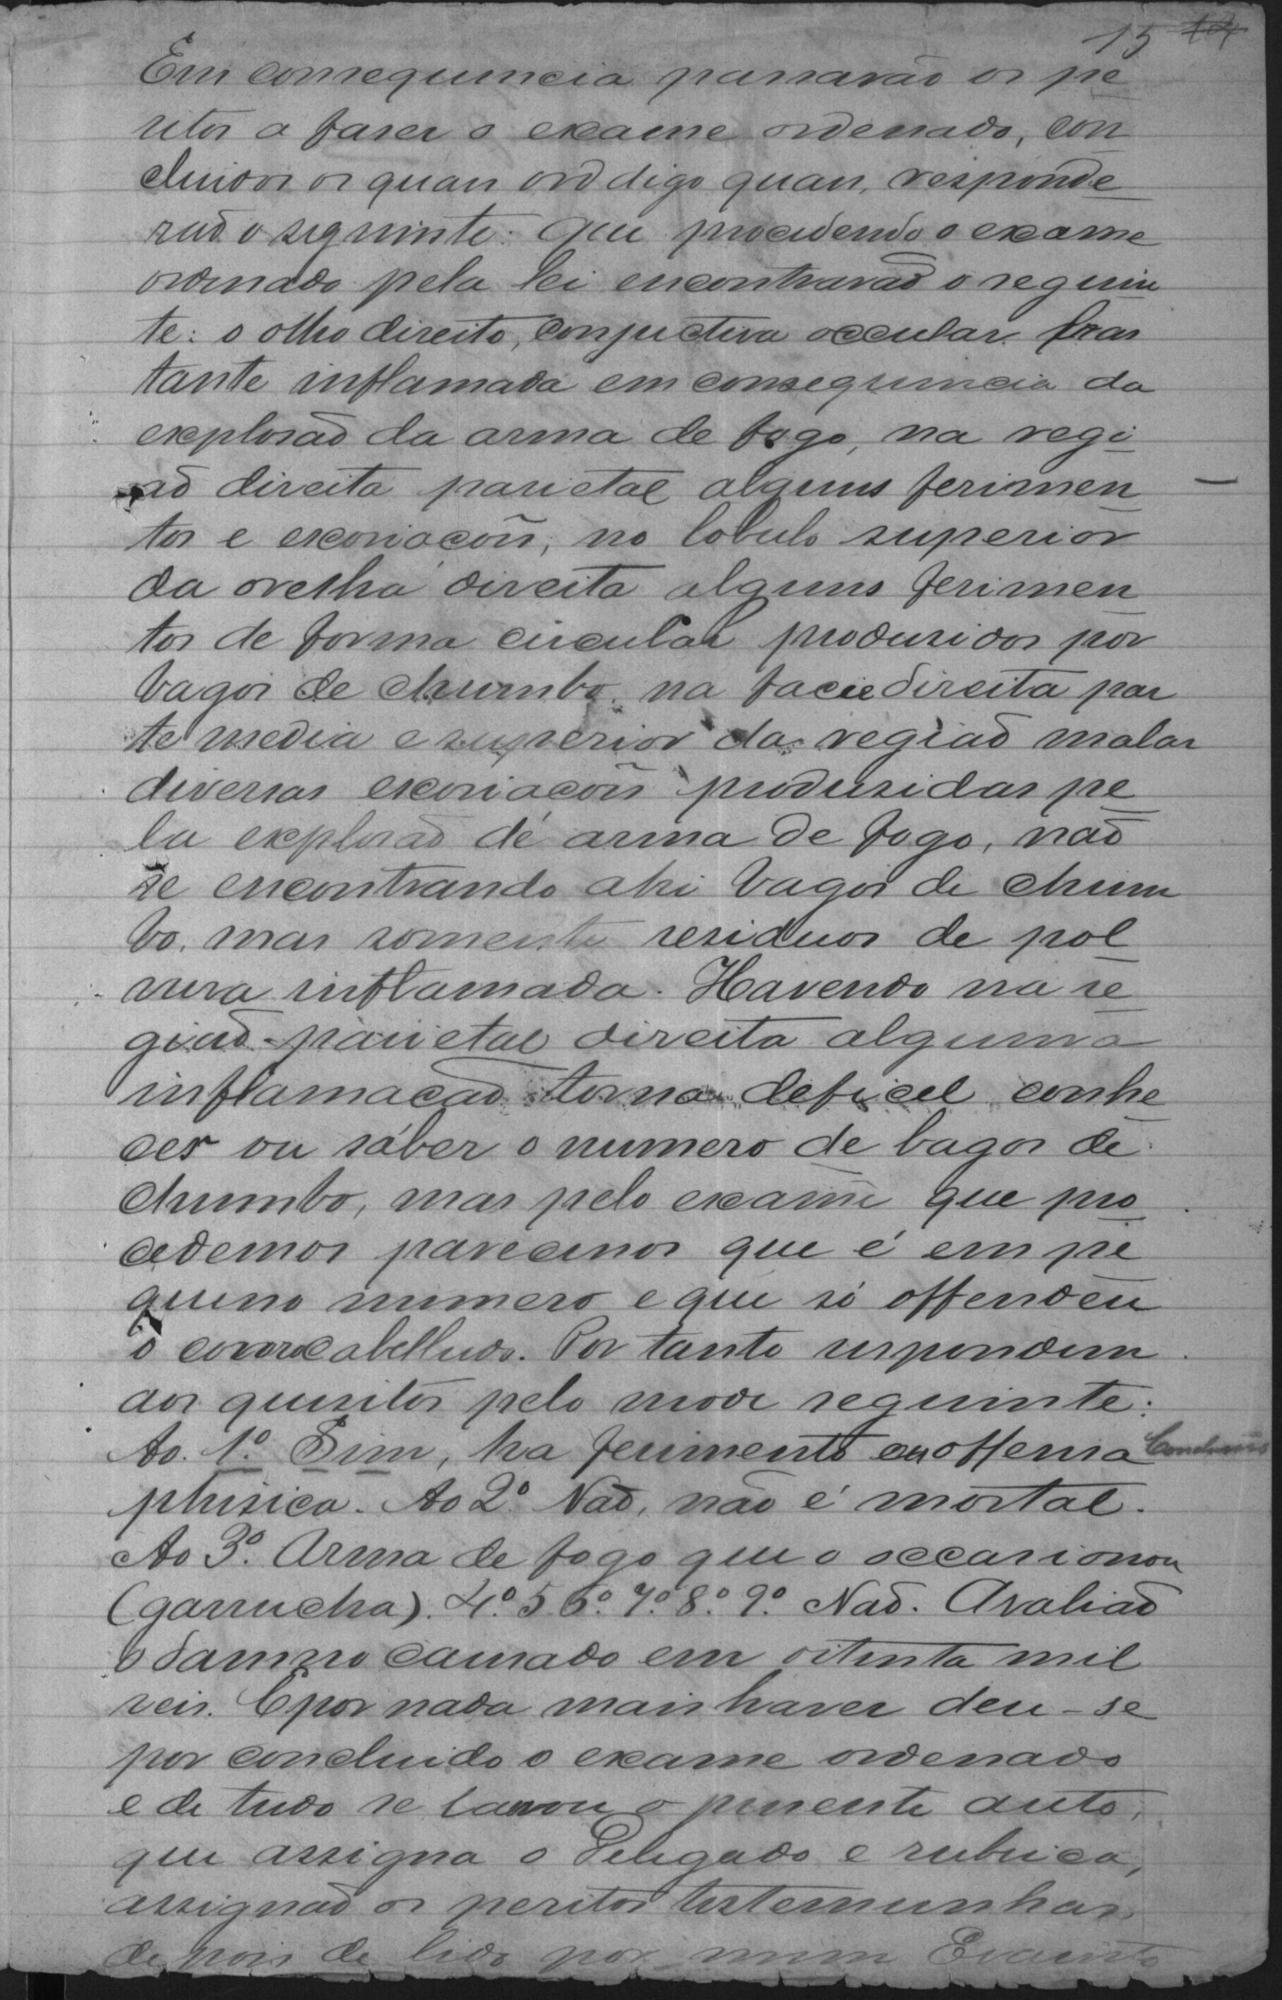 15 14
Em consequencia passarão os pe
ritos a faser o exame ordenado, con
cluidos os quaes ord digo quaes, responde
rão o seguinte: Que procedendo o exame
ordenado pela lei encontrarão o seguin
te: o olho direito, conjuctiva occular bras
tante inflamada em consequencia da
explosão da arma de fogo, na regi
ão direita parietal alguns ferimen
tos e excoriacoes, no lobulo superior
da orelha direita alguns ferimen
tos de forma circular produsidos por
bagos de chumbo, na facie direita par
te media e superior da região malar
diversas excoriacoes produsidas pe
la explosão de arma de fogo, não
se encontrando ahi bagos de chum
bo, mas somente residuos de pol
vora inflamada. Havendo na re
gião parietal direita alguma
inflamacão torna deficel conhe
cer ou saber o numero de bagos de
chumbo, mas pelo exame que pro
cedemos parecenos que é em pe
queno numero e que só offendeu
o couro cabelludo. Por tanto respondem
aos quesitos pelo modo seguinte:
Ao 1º Sim, ha ferimento ou offensa
Conclusão
phisica. Ao 2º Não, não é mortal.
Ao 3º. Arma de fogo que o occasionou
(garrucha). 4º 5 6º 7º 8º 9º Não. Avalião
o damno causado em oitenta mil
reis. E por nada mais haver deu-se
por concluido o exame ordenado
e de tudo se lavrou o presente auto,
que assigna o Delegado e rubrica,
assignão os peritos testemunhas
depois de lido por mim Escrivão